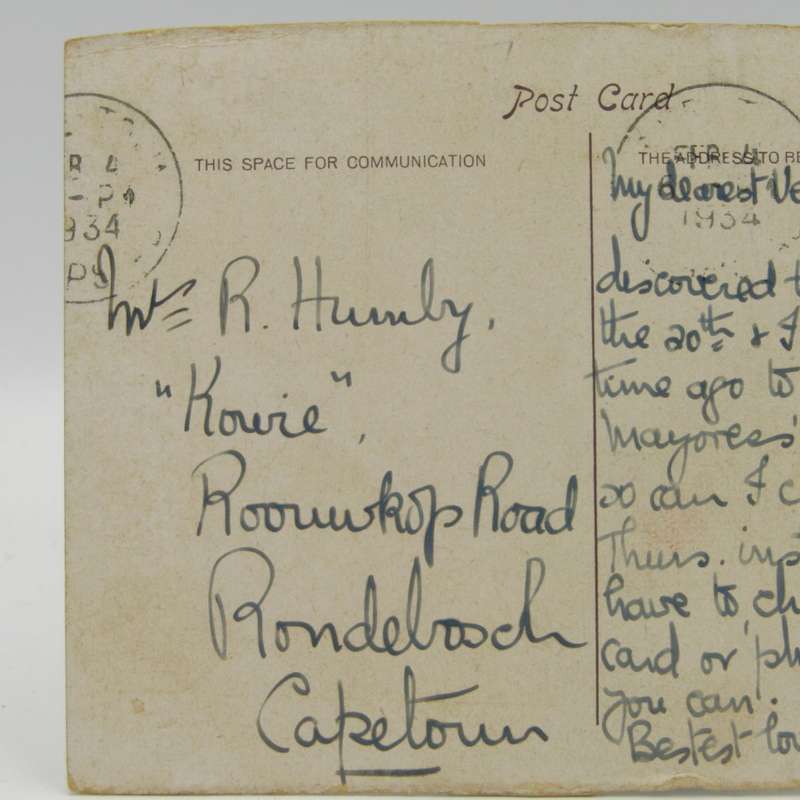 Post Card
THIS SPACE FOR COMMUNICATION
THE ADDRESS TO BE
4
1934
1934
Mrs R. Humby,
"Kowie",
Road
Rondebosch
Capetown
My dearest Ve
discovered t
the 20th & I
time ago to
Mayoress'
so can I c
Thurs. ins
have to ch
card or 'ph
you can.
Bestest lov